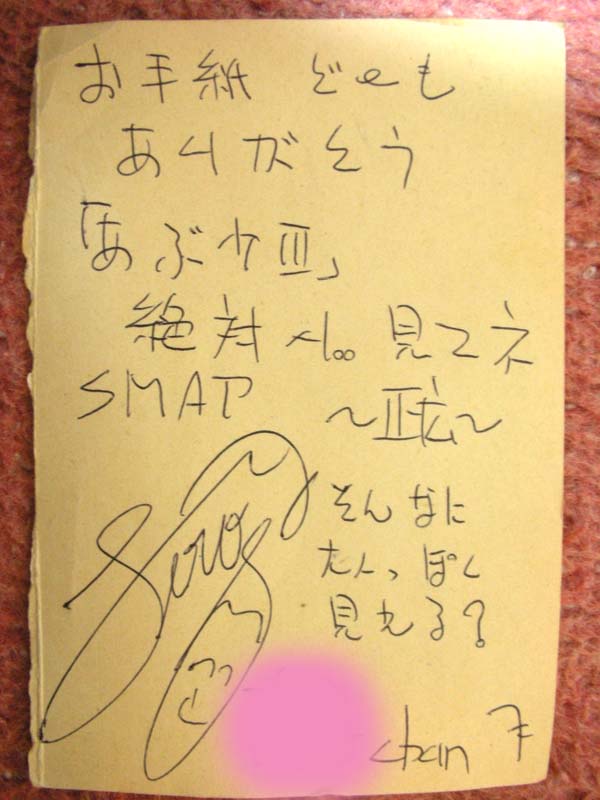 お手紙 どーも
ありがとう
「あぶ少Ⅲ」
絶対 見てネ
SMAP ~正広~
そんなに
大人っぽく
見える?
chan